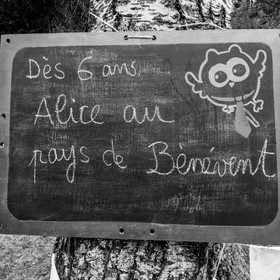 Dès 6 ans
Alice au
pays de Bénévent